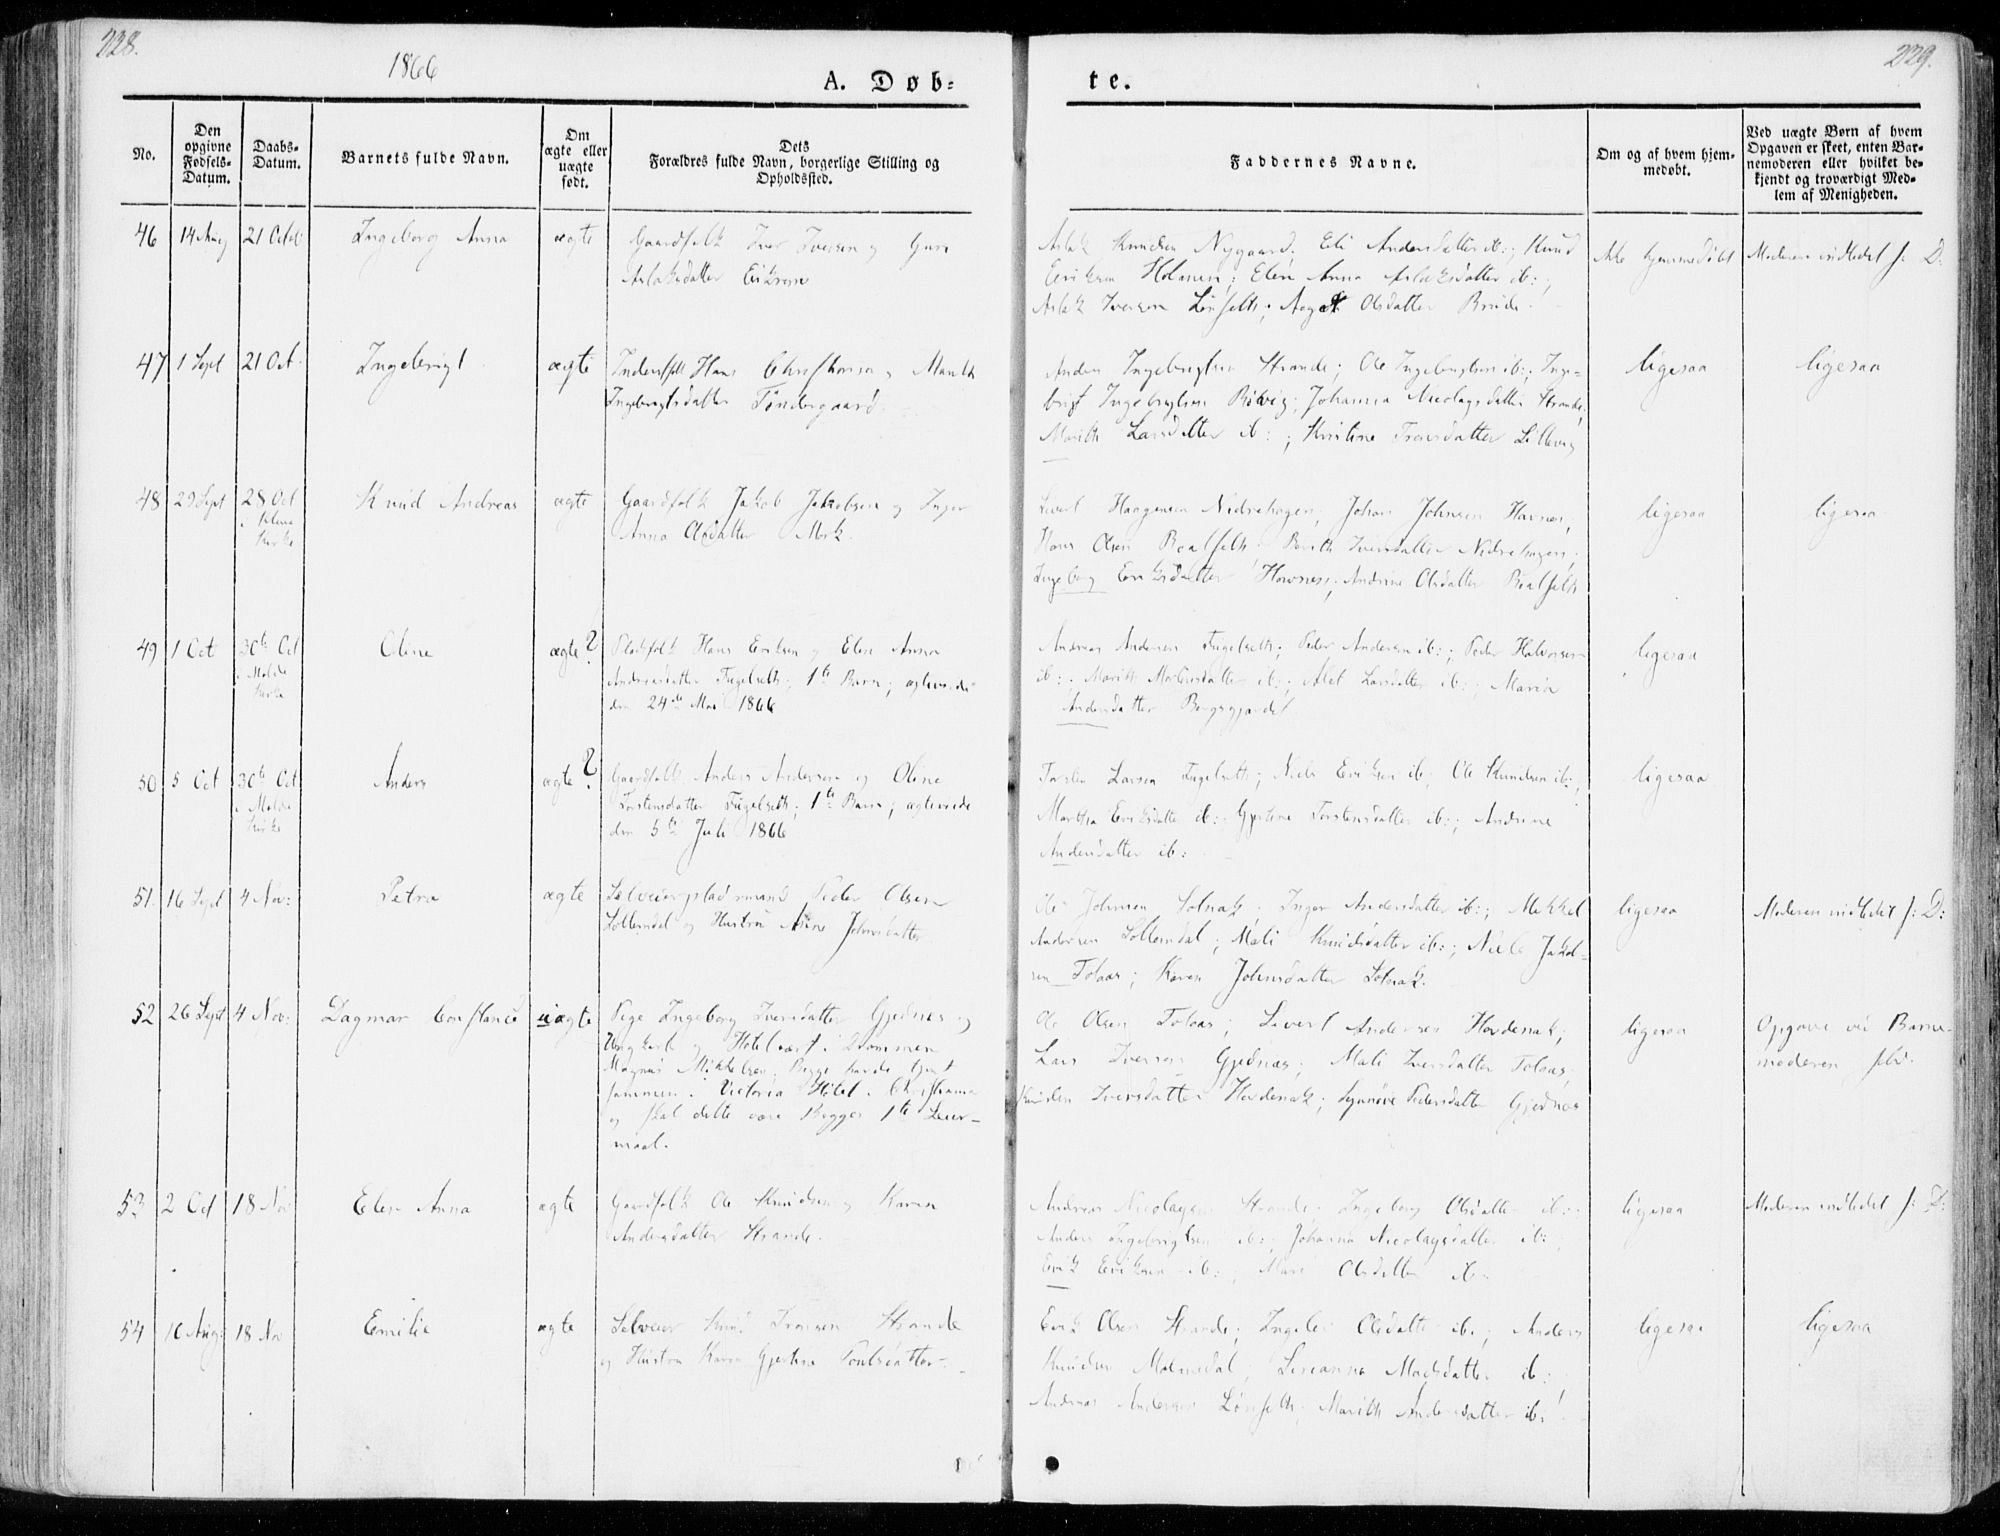 228.
1866
A. Døb-
te.
229.
No.
Den opgivne Fødsels-Datum.
Daabs-Datum.
Barnets fulde Navn.
Om ægte eller uægte født.
Dets Forældres fulde Navn, borgerlige Stilling og Opholdssted.
Faddernes Navne.
Om og af hvem hjem-medøbt.
Ved uægte Børn af hvem Opgaven er skeet, enten Bar-nemoderen eller hvilket be-kjendt og troværdigt Med-lem af Menigheden.
46 14 Aug 21 Octob Ingeborg Anna ægte Gaardfolk Iver Iversen og Guri
Aslaksdatter Eikrem
Aslak Knudsen Nygaard; Eli Andersdatter ib:; Knud
Eriksen Holmen; Elen Anna Aslaksdatter ib:;
Aslak Iversen Lønseth; Olsdatter
Ikke hjemmedøbt
Moderen indledet f: D:
47 1 Sept 21 Oct Ingebrigt ægte Hans Christiansen og Marith
Ingebrigtsdatter Tøndergaard
Anders Ingebrigtsen Strande; Ole Ingebrigtsen ib:; Inge-
brigt Ingebrigtsen Johanna Nicolaysdatter Strande;
Marith Larsdatter ib:; Kristine Lillevig
ligesaa
ligesaa
48 29 Sept 28 Oct Knud Andreas ægte Gaardfolk Jakob Jakobsen og Inger
i Kirke
Anna Olsdatter Mork
Sivert Haagensen Nidrehagen; Johan Johnsen Havnes;
Hans Olsen Berith Iversdatter Nidrehagen;
Ingeborg Eriksdatter Havnes; Andrine Olsdatter
ligesaa
ligesaa
49 1 Oct 30te Oct Oline ægte? Pladsfolk Hans Eriksen og Elen Anna
i Molde Kirke
Andreasdatter Fugelseth; 1te Barn; ægteviede
den 24de Mai 1866
Andreas Andersen Fugelseth; Peder Andersen ib:; Peder Halvorsen
ib:; Marith ib:; Larsdatter ib:; Maria
Andersdatter Bergsgjerdet
ligesaa
50 5 Oct 30te Oct Anders ægte? Gaardfolk Anders Andersen og Oline
i Molde Kirke
Torstensdatter Fugelseth; 1te Barn; ægteviede
den 5te Juli 1866
Torsten Larsen Fugelseth; Niels Eriksen ib:; Ole Knudsen ib:;
Martha Eriksdatter ib:; Gjertine Torstensdatter ib:; Andrine
Andersdatter ib:
ligesaa
51. 16 Sept 4 Nov: Petra ægte Selveierpladsmand Peder Olsen
Sollemdal og Hustru Johnsdatter
Ole Johnsen Solnak; Inger Andersdatter ib:; Mekkel
Andersen Sollemdal; Mali Knudsdatter ib:; Niels Jakob-
sen Tolaas; Karen Johnsdatter Solnak.
ligesaa
Moderen indledet f: D:
52 26 Sept 4 Nov: Dagmar Constance uægte Pige Ingeborg Iversdatter Gjednæs og
Ungkarl og Hotelvært i Drammen
Magnus Mikkelsen. Begge havde tjent
sammen i Victoria Hôtel i Christiania
og skal dette være Begges 1te Leier-
maal.
Ole Olsen Tolaas; Sivert Andersen Hovdenak;
Lars Iversen Gjednæs; Mali Iversdatter Tolaas;
Iversdatter Hovdenak; Synnøve Pedersdatter Gjednæs
ligesaa
Opgave ved Barne-
moderen selv.
53 2 Oct 18 Nov Elen Anna ægte Gaardfolk Ole Knudsen og Karen
Andersdatter Strande.
Andreas Nicolaysen Strande; Ingeborg Olsdatter ib:;
Anders Ingebrigtsen ib:; Johanna Nicolaysdatter ib:;
Erik Eriksen ib:; Mari Olsdatter ib:
ligesaa
Moderen indledet f: D:
54 10 Aug: 18 Nov Emilie ægte Selveier Knud Strande
og Hustru Karen Gjertine
Erik Olsen Strande; Olsdatter ib:; Anders
Knudsen Malmedal; Madsdatter ib:;
Andreas Andersen Lønseth; Marith Andersdatter ib:
ligesaa
ligesaa